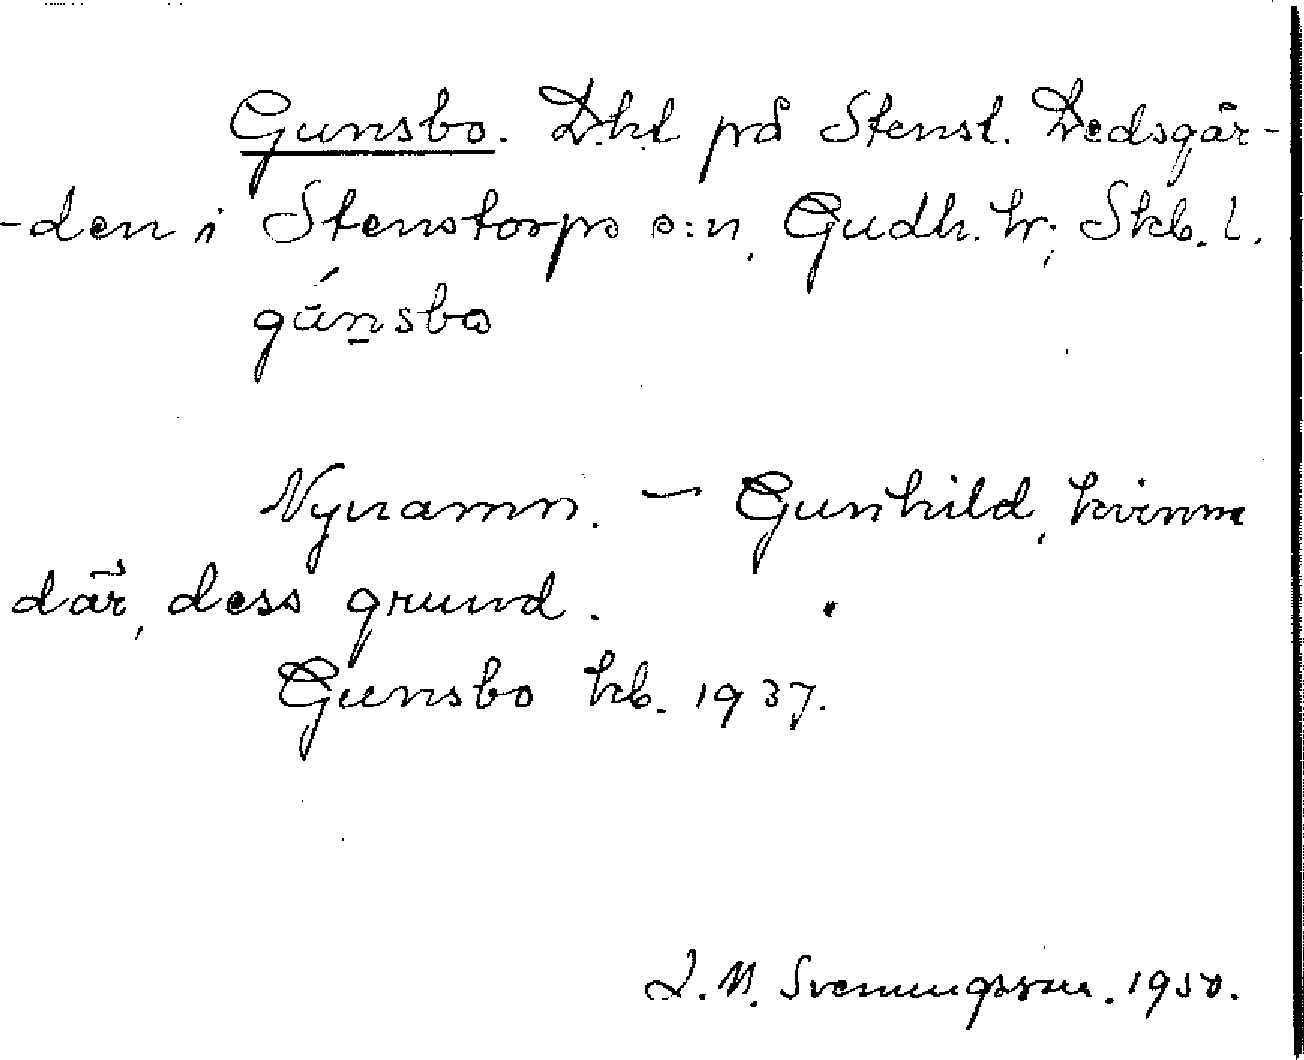 Gunsbo. D.h.l på Stenst. Dedsgår-
-den i Stenstorps s:n, Gudh. hr; Skb. l.
gúnsbo
Nynamn. — Gunhild, kvinna
där, dess grund.
Gunsbo kb. 1937.
J. M. Svenungsson. 1950.